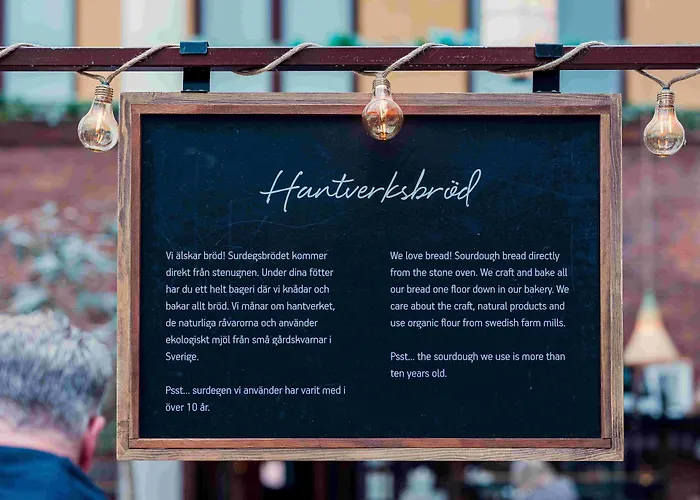 Hantverksbröd
Vi älskar bröd! Surdegsbrödet kommer
direkt från stenugnen. Under dina fötter
har du ett helt bageri där vi knådar och
bakar allt bröd. Vi månar om hantverket,
de naturliga råvarorna och använder
ekologiskt mjöl från små gårdskvarnar i
Sverige.
Psst... surdegen vi använder har varit med i
över 10 år.
We love bread! Sourdough bread directly
from the stone oven. We craft and bake all
our bread one floor down in our bakery. We
care about the craft, natural products and
use organic flour from swedish farm mills.
Psst... the sourdough we use is more than
ten years old.